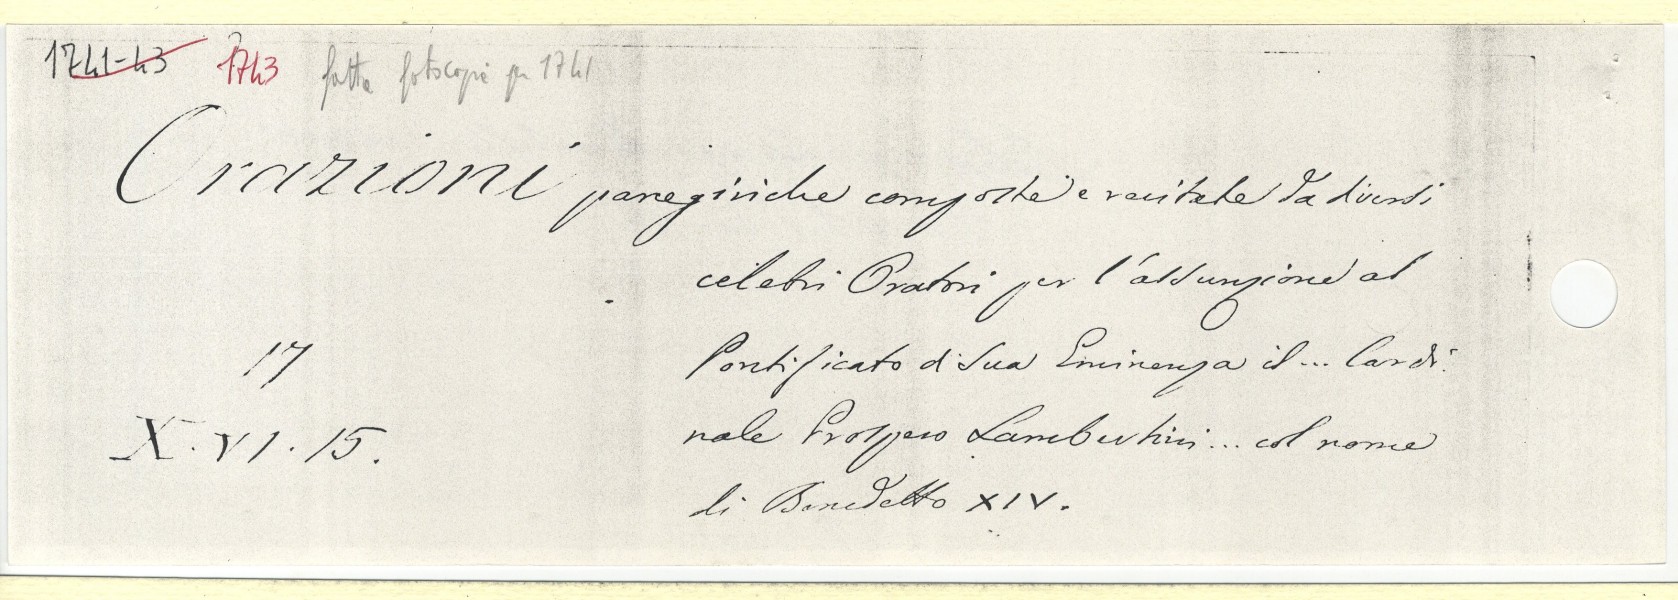 1741-43 1743 fatta fotocopia per 1741
Orazioni panegiriche composte e recitate da diversi
celebri Oratori per l'assunzione al
Pontificato di Sua Eminenza il... Cardi-
nale Prospero Lambertini... col nome
di Benedetto XIV.
17
X.VI.15.